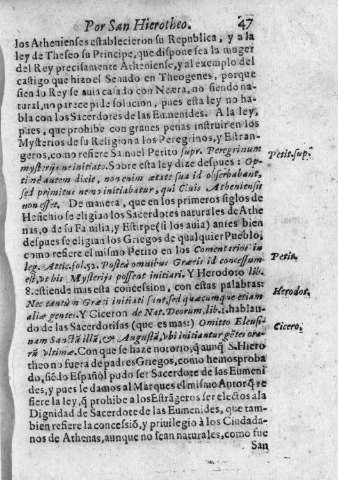 Por San Hierotheo. 47
los Athenienses establecieron su Republica, y a la
ley de Theseo su Principe, que dispone sea la muger
del Rey precisamente Atheniense, y al exemplo del
castigo que hizo el Senado en Theogenes, porque
siendo Rey se auia casado con Neæra, no siendo na-
tural, no parece pide solucion, pues esta ley no ha-
bla con los Sacerdotes de las Eumenides. A la ley,
pues, que prohibe con graues penas instruir en los
Mysterios de su Religion a los Peregrinos, y Estran-
geros, como refiere Samuel Petito supr. Peregrinum
mysterijs ne initiato. Sobre esta ley dize despues: Op-
tinè autem dixit, non enim ætate sua id obserbabant,
sed primitus nemo initiabatur, qui Ciuis Atheniensis
non esset. De manera, que en los primeros siglos de
Hesichio se eligian los Sacerdotes naturales de Athe
nas, o de su Familia, y Estirpe (si los auia) antes bien
despues se eligian los Griegos de qualquier Pueblo,
como refiere el mismo Petito en los Comentarios in
leg. Attic. fol. 52. Postea omnibus Græcis id concessum
est, vt his Mysterijs possent initiari. Y Herodoto lib.
8. estiende mas esta concession, con estas palabras:
Nec tantum Græci initiati sunt, sed quacumque etiam
aliæ gentes. Y Ciceron de Nat. Deorum, lib. 1. hablan-
do de las Sacerdotisas (que es mas:) Omitto Eleusi-
nam Sanctã illã, & Augustã, vbi initiantur gẽtes ora-
rũ vltimæ. Con que se haze notorio, q̃ aunq̃ S. Hiero
theo no fuera de padres Griegos, como hemos proba
do, siẽdo Español pudo ser Sacerdote de las Eumeni
des, y pues le damos al Marques el mismo Autor q̃ re
fiere la ley, q̃ prohibe a los Estrãgeros ser electos a la
Dignidad de Sacerdote de las Eumenides, que tam-
bien refiere la concessiõ, y priuilegio à los Ciudada-
nos de Athenas, aunque no sean naturales, como fue
San
Petit. supr.
Petit.
Herodot.
Cicero.